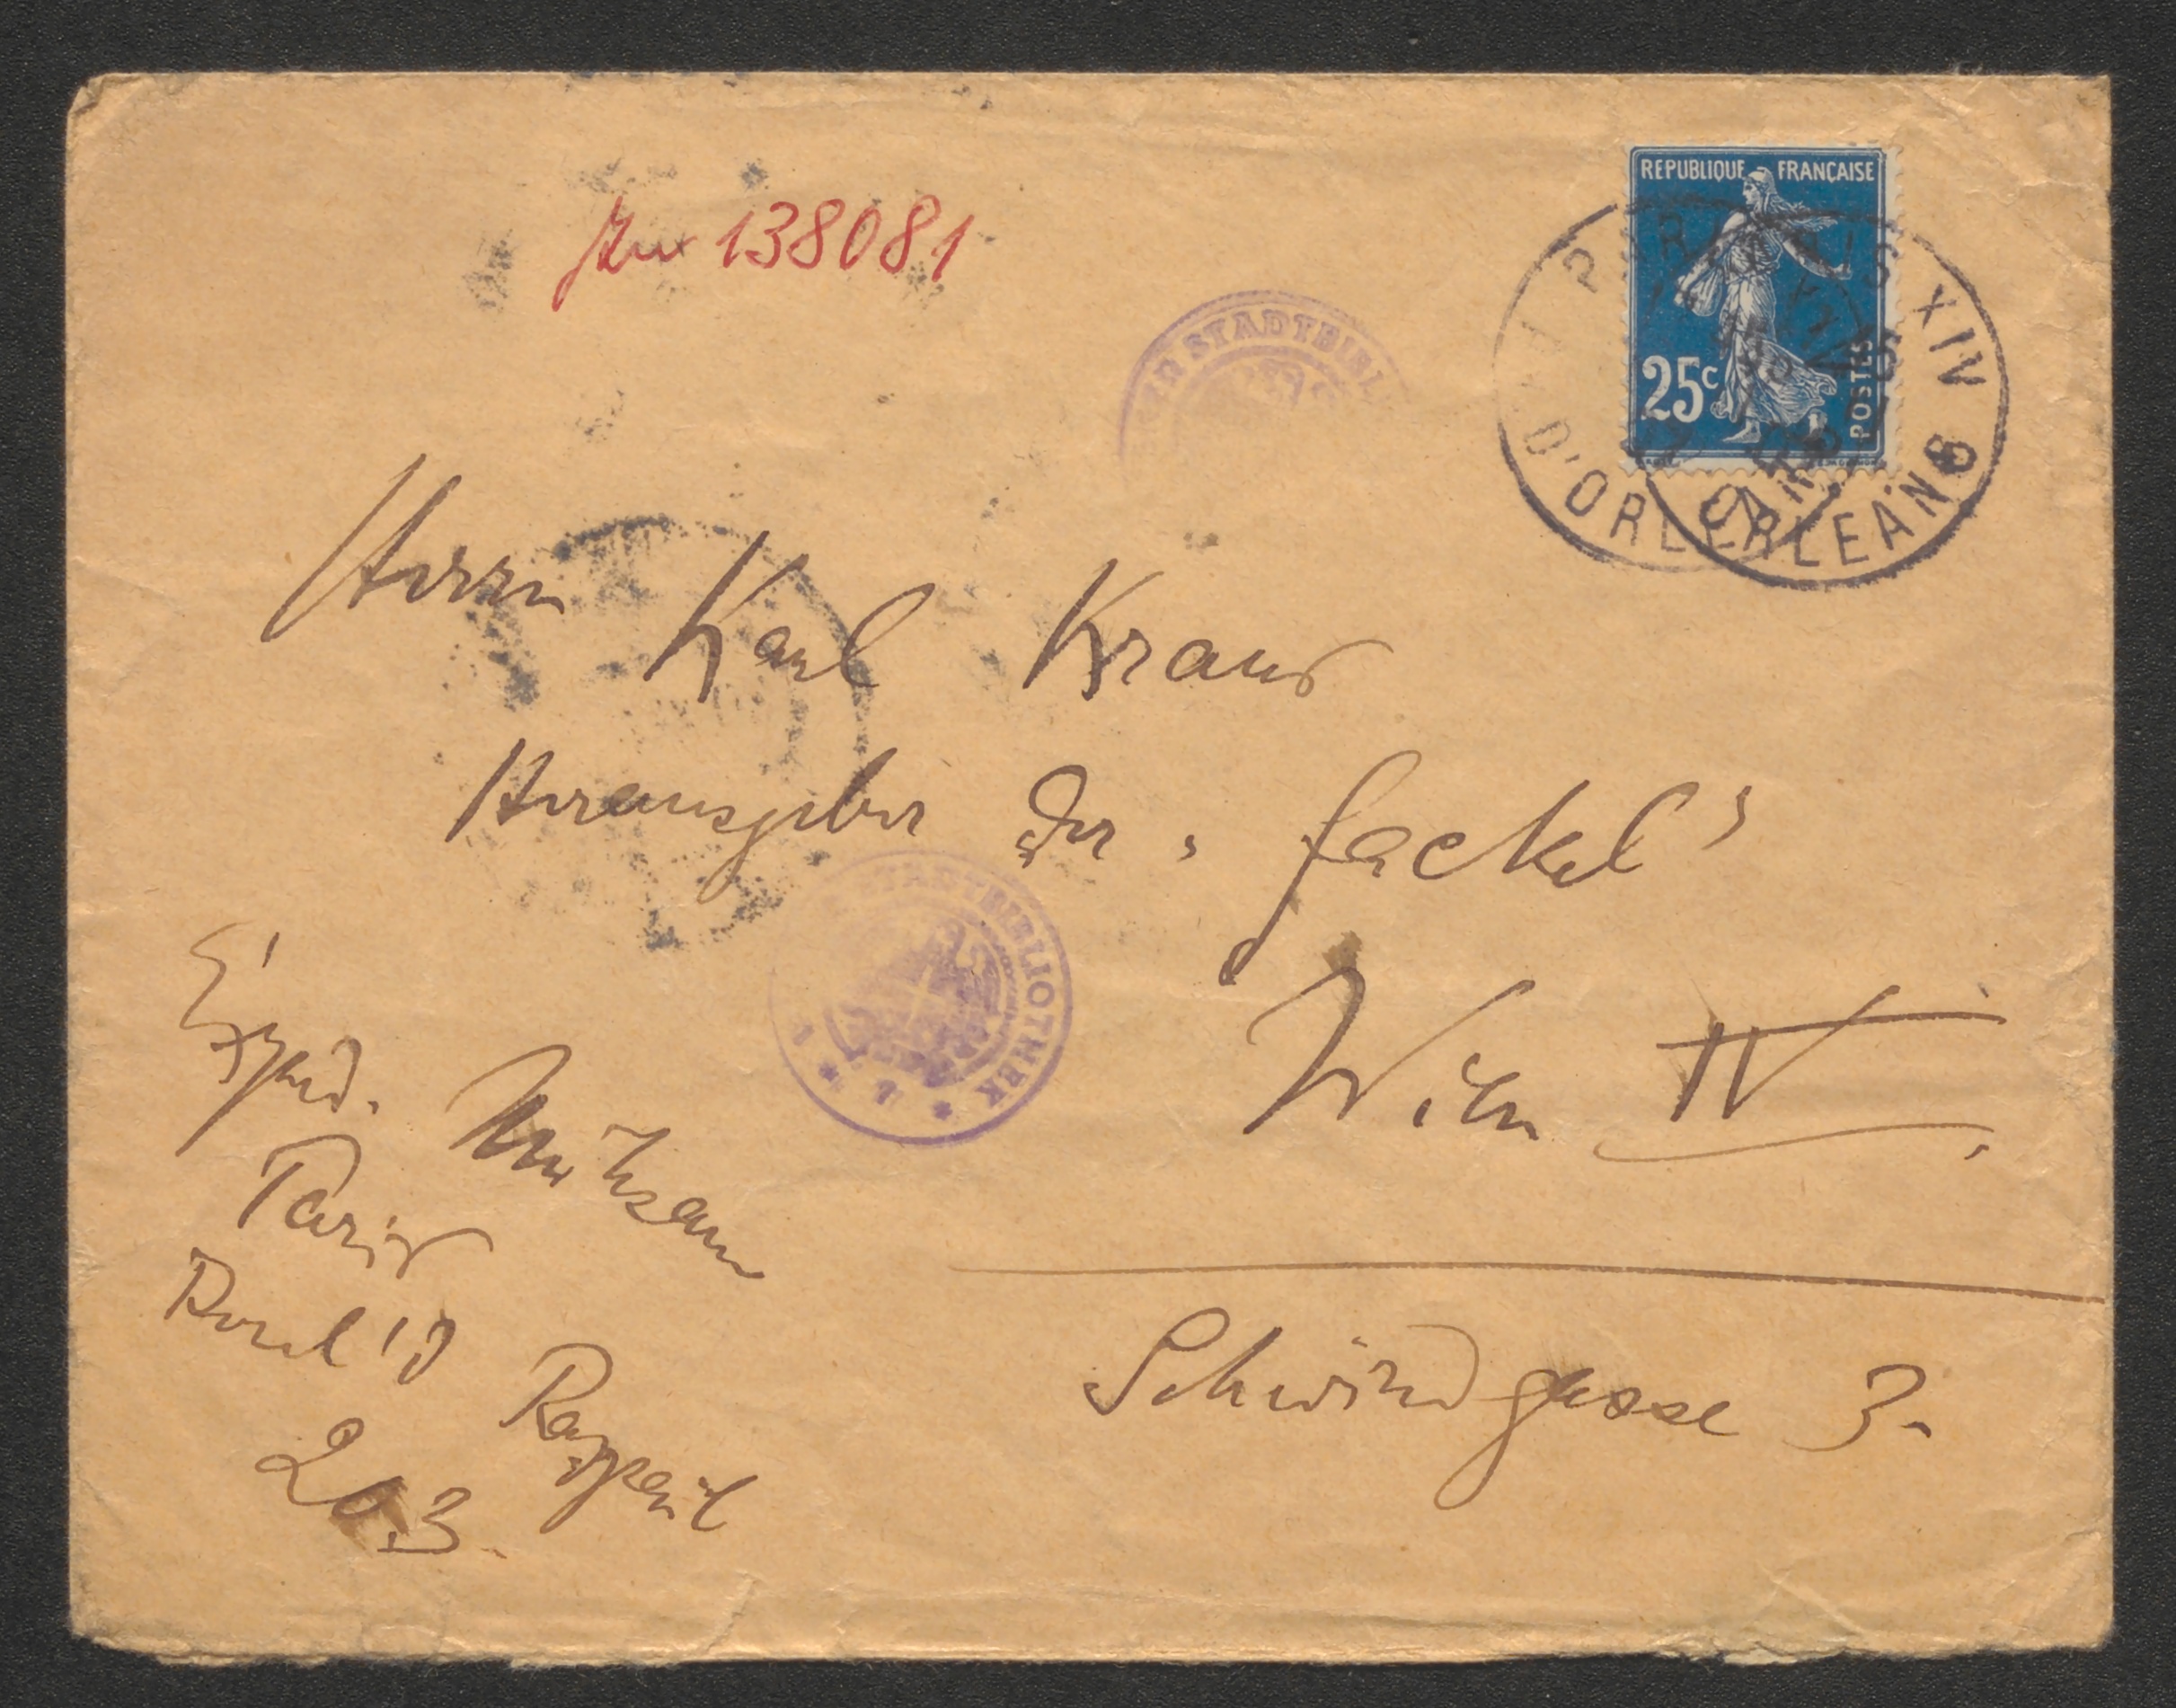 Zu 138081
REPUBLIQUE FRANÇAISE
25c
POSTES
PARIS XIV
D'ORLEANS
STADTBIBL
Herrn
Karl Kraus
Herausgeber der "Fackel"
STADTBIBLIOTHEK
Wien IV
Schwindgasse 3.
Exped. Mühsam
Paris
Boul'd Raspail
203.